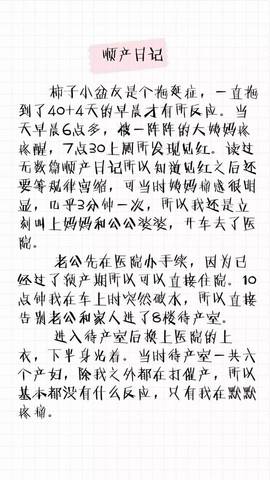 顺产日记
柿子小盆友是个拖延症，一直拖
到了40+4天的早晨才有所反应。当
天早晨6点多，被一阵阵的大姨妈疼
疼醒，7点30上厕所发现见红。读过
无数篇顺产日记所以知道见红之后还
要等规律宫缩，可当时姨妈痛感很明
显，几乎3分钟一次，所以我还是立
刻叫上妈妈和公公婆婆，开车去了医
院。
老公先在医院办手续，因为已
经过了预产期所以可以直接住院。10
点钟我在车上时突然破水，所以直接
告别老公和家人进了8楼待产室。
进入待产室后换上医院的上
衣，下半身光着。当时待产室一共六
个产妇，除我之外都在打催产，所以
基本都没有什么反应，只有我在默默
疼痛。